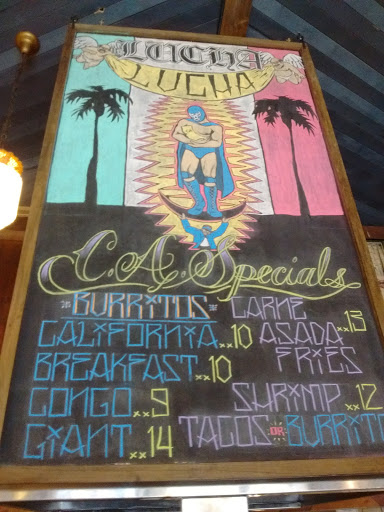 LUCHA
LUCHA
C.A. Specials
BURRITOS
CALIFORNIA..10
BREAKFAST..10
CONGO..9
GIANT..14
CARNE
ASADA..13
FRIES
SHRIMP..12
TACOS OR BURRITO